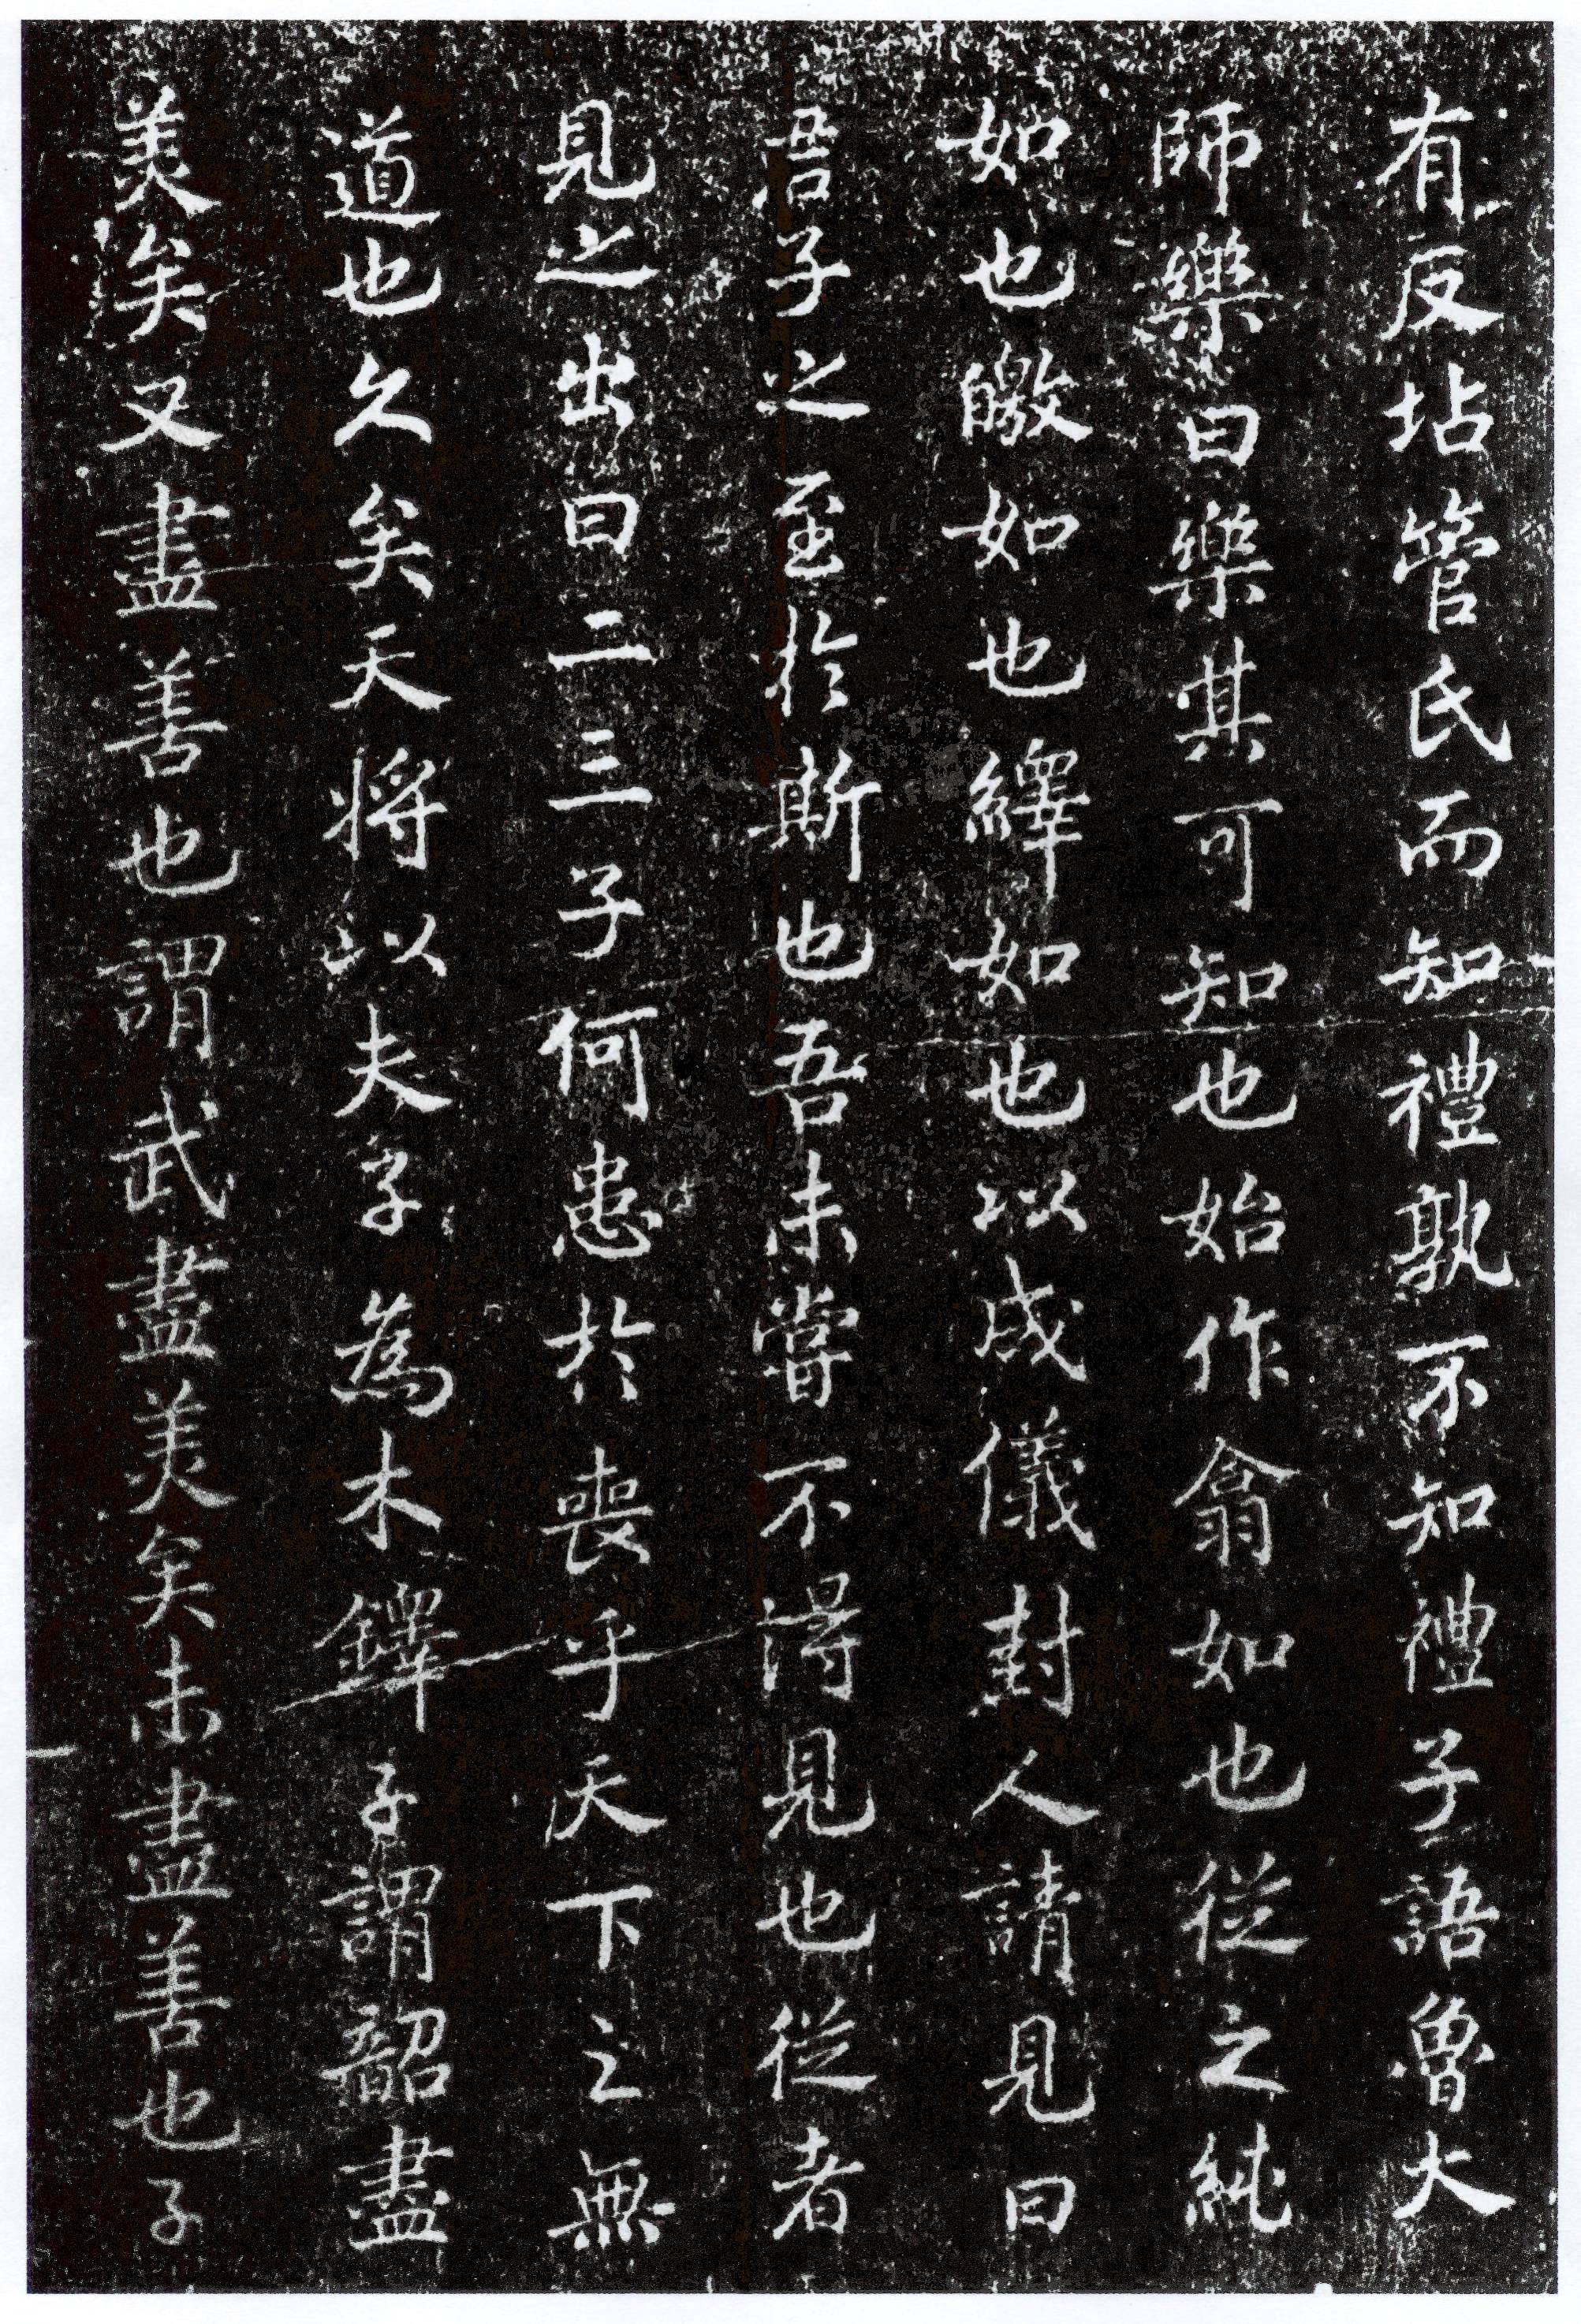 有反坫管氏而知禮孰不知禮子語魯大
師樂曰樂其可知也始作翕如也從之純
如也皦如也繹如也以成儀封人請見曰
君子之至於斯也吾未嘗不得見也從者
見之出曰二三子何患於喪乎天下之無
道也久矣天將以夫子為木鐸子謂韶盡
美矣又盡善也謂武盡美矣未盡善也子